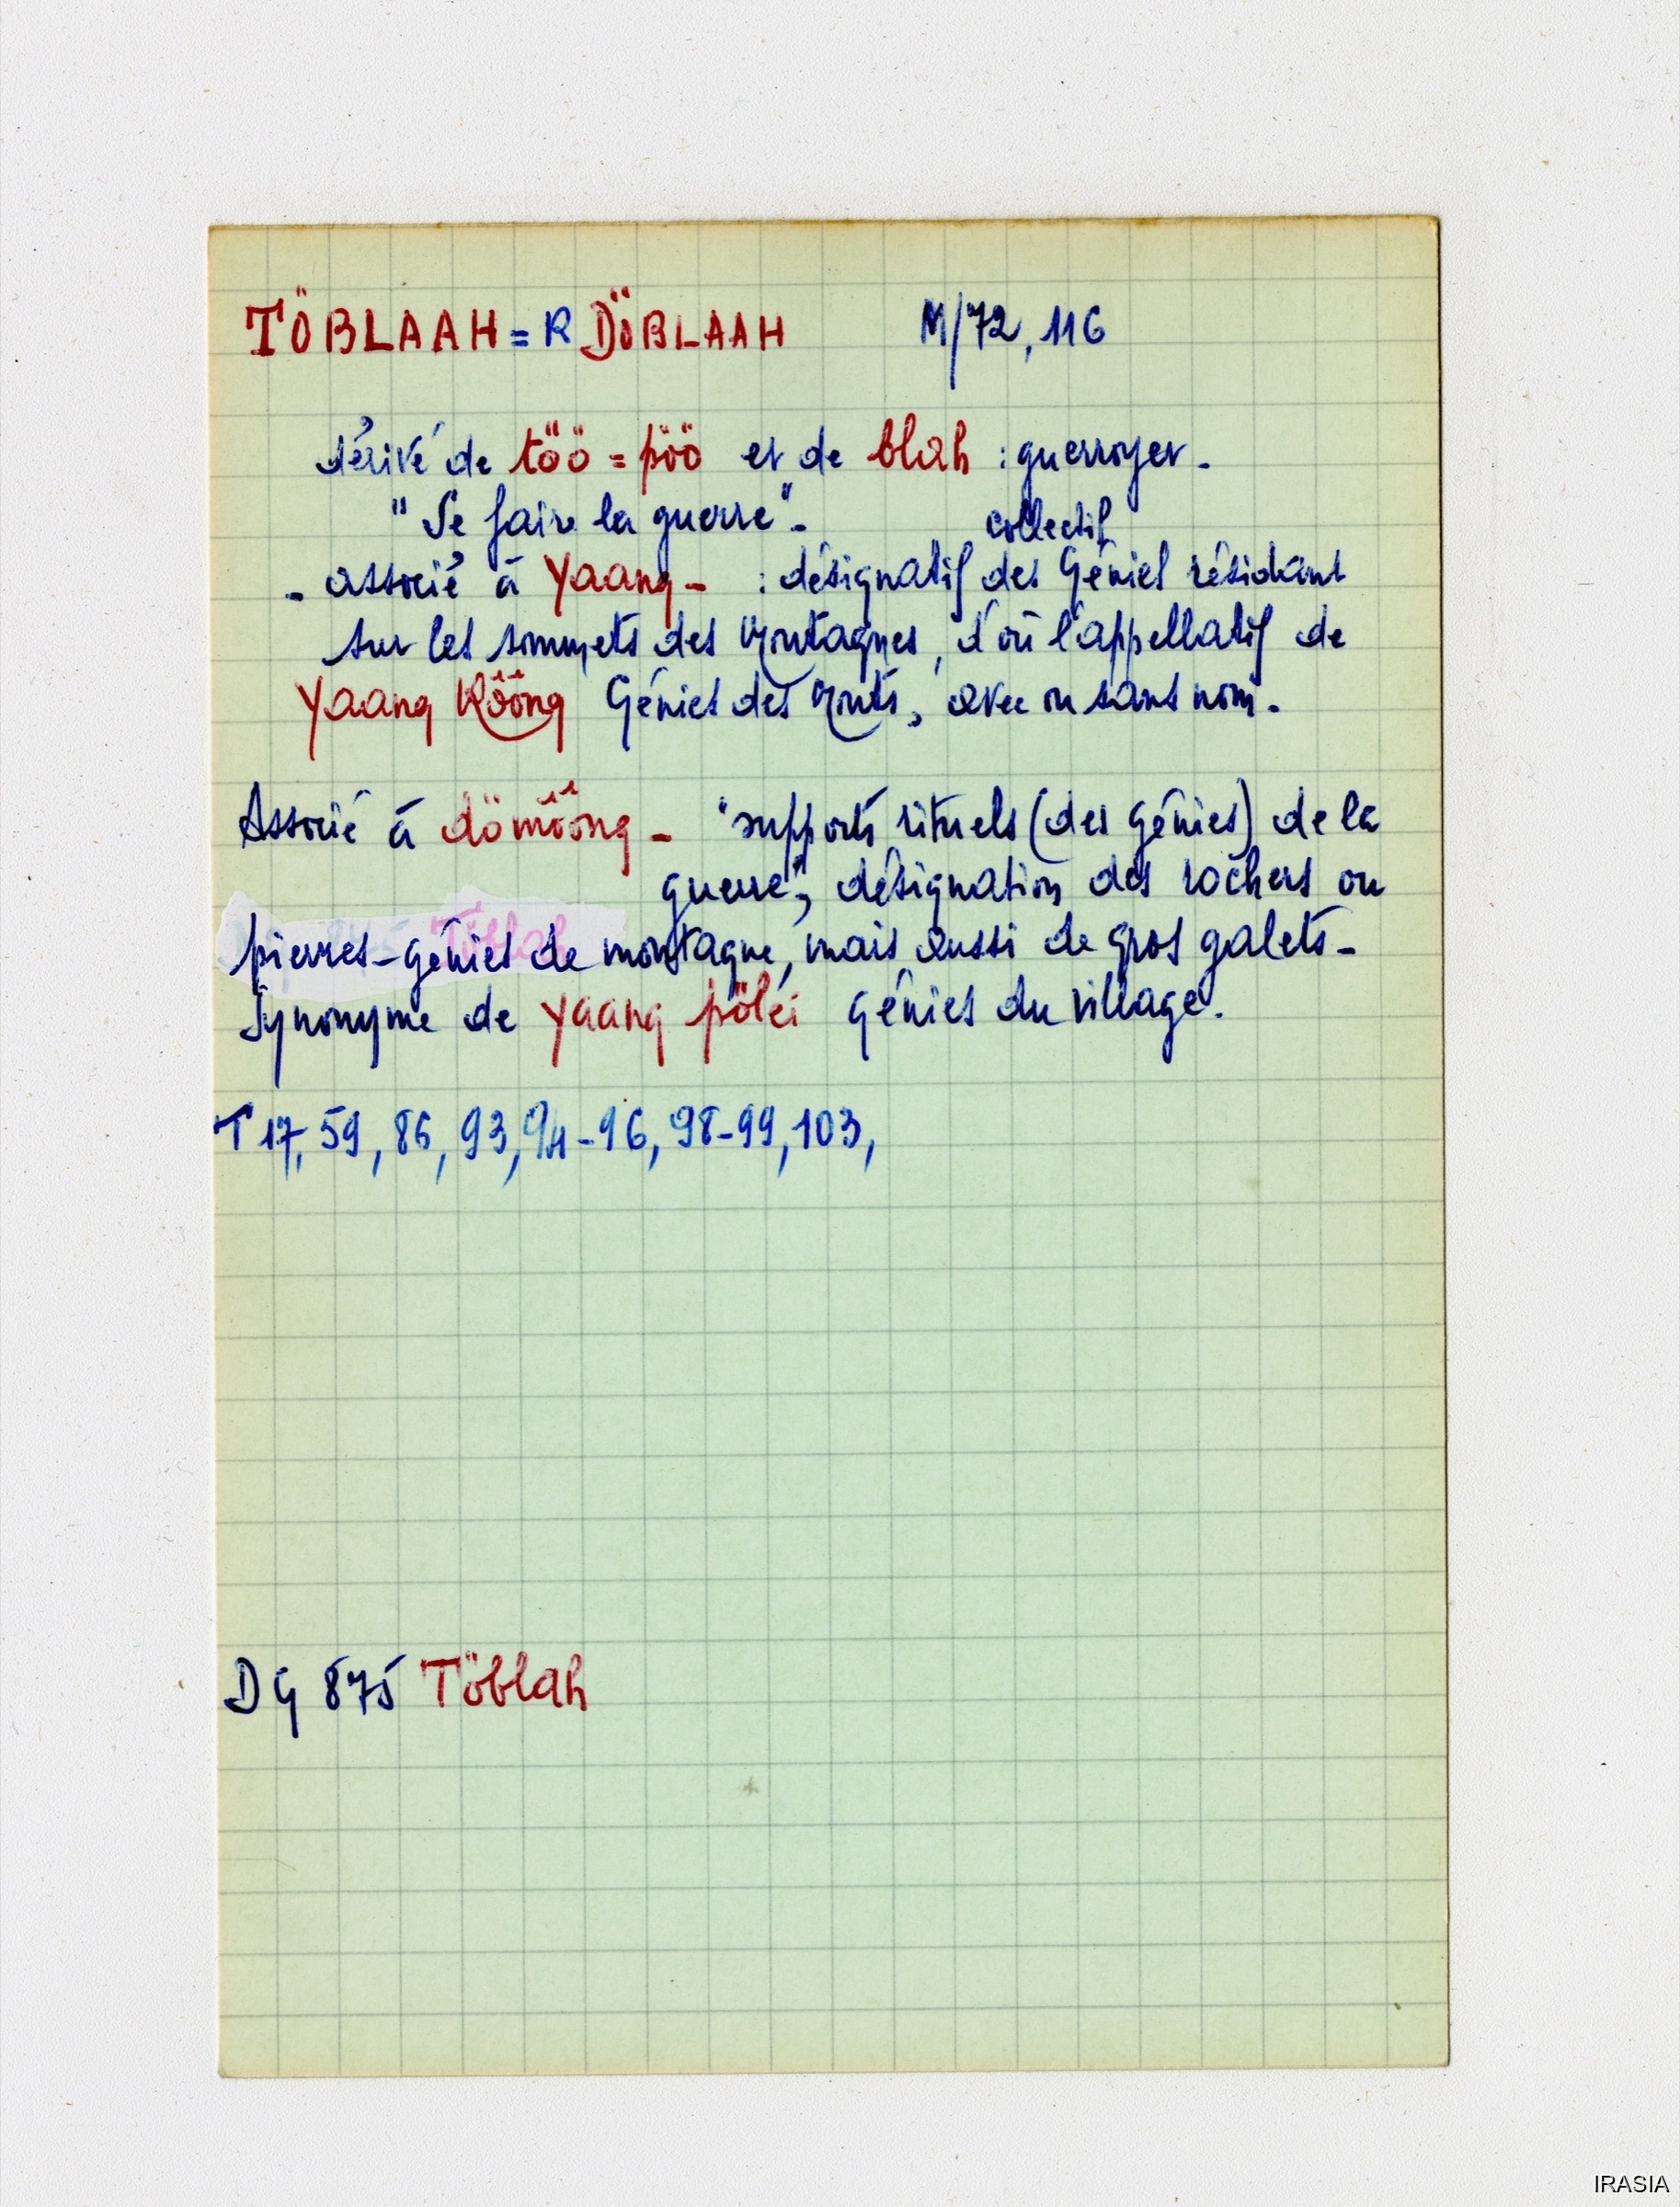 TÖBLAAH = R DÖBLAAH M/72, 116
dérivé de töö = pöö et de blah : guerroyer.
"Se faire la guerre".
collectif
- associé à Yaang - : désignatif des Génies résidant
sur les sommets des Montagnes, d'où l'appellatif de
Yaang Kôông Génies des Monts, avec ou sans nom.
Associé à dömôông - "supports rituels (des génies) de la
guerre", désignation des rochers ou
pierres-génies de montagne, mais aussi de gros galets -
Synonyme de yaang pölei génies du village.
T 17, 59, 86, 93, 94-96, 98-99, 103,
DG 875 Töblah
IRASIA